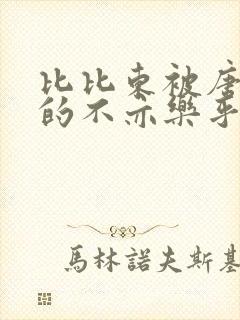 比比东被唐
的不亦樂乎
馬林諾夫斯基